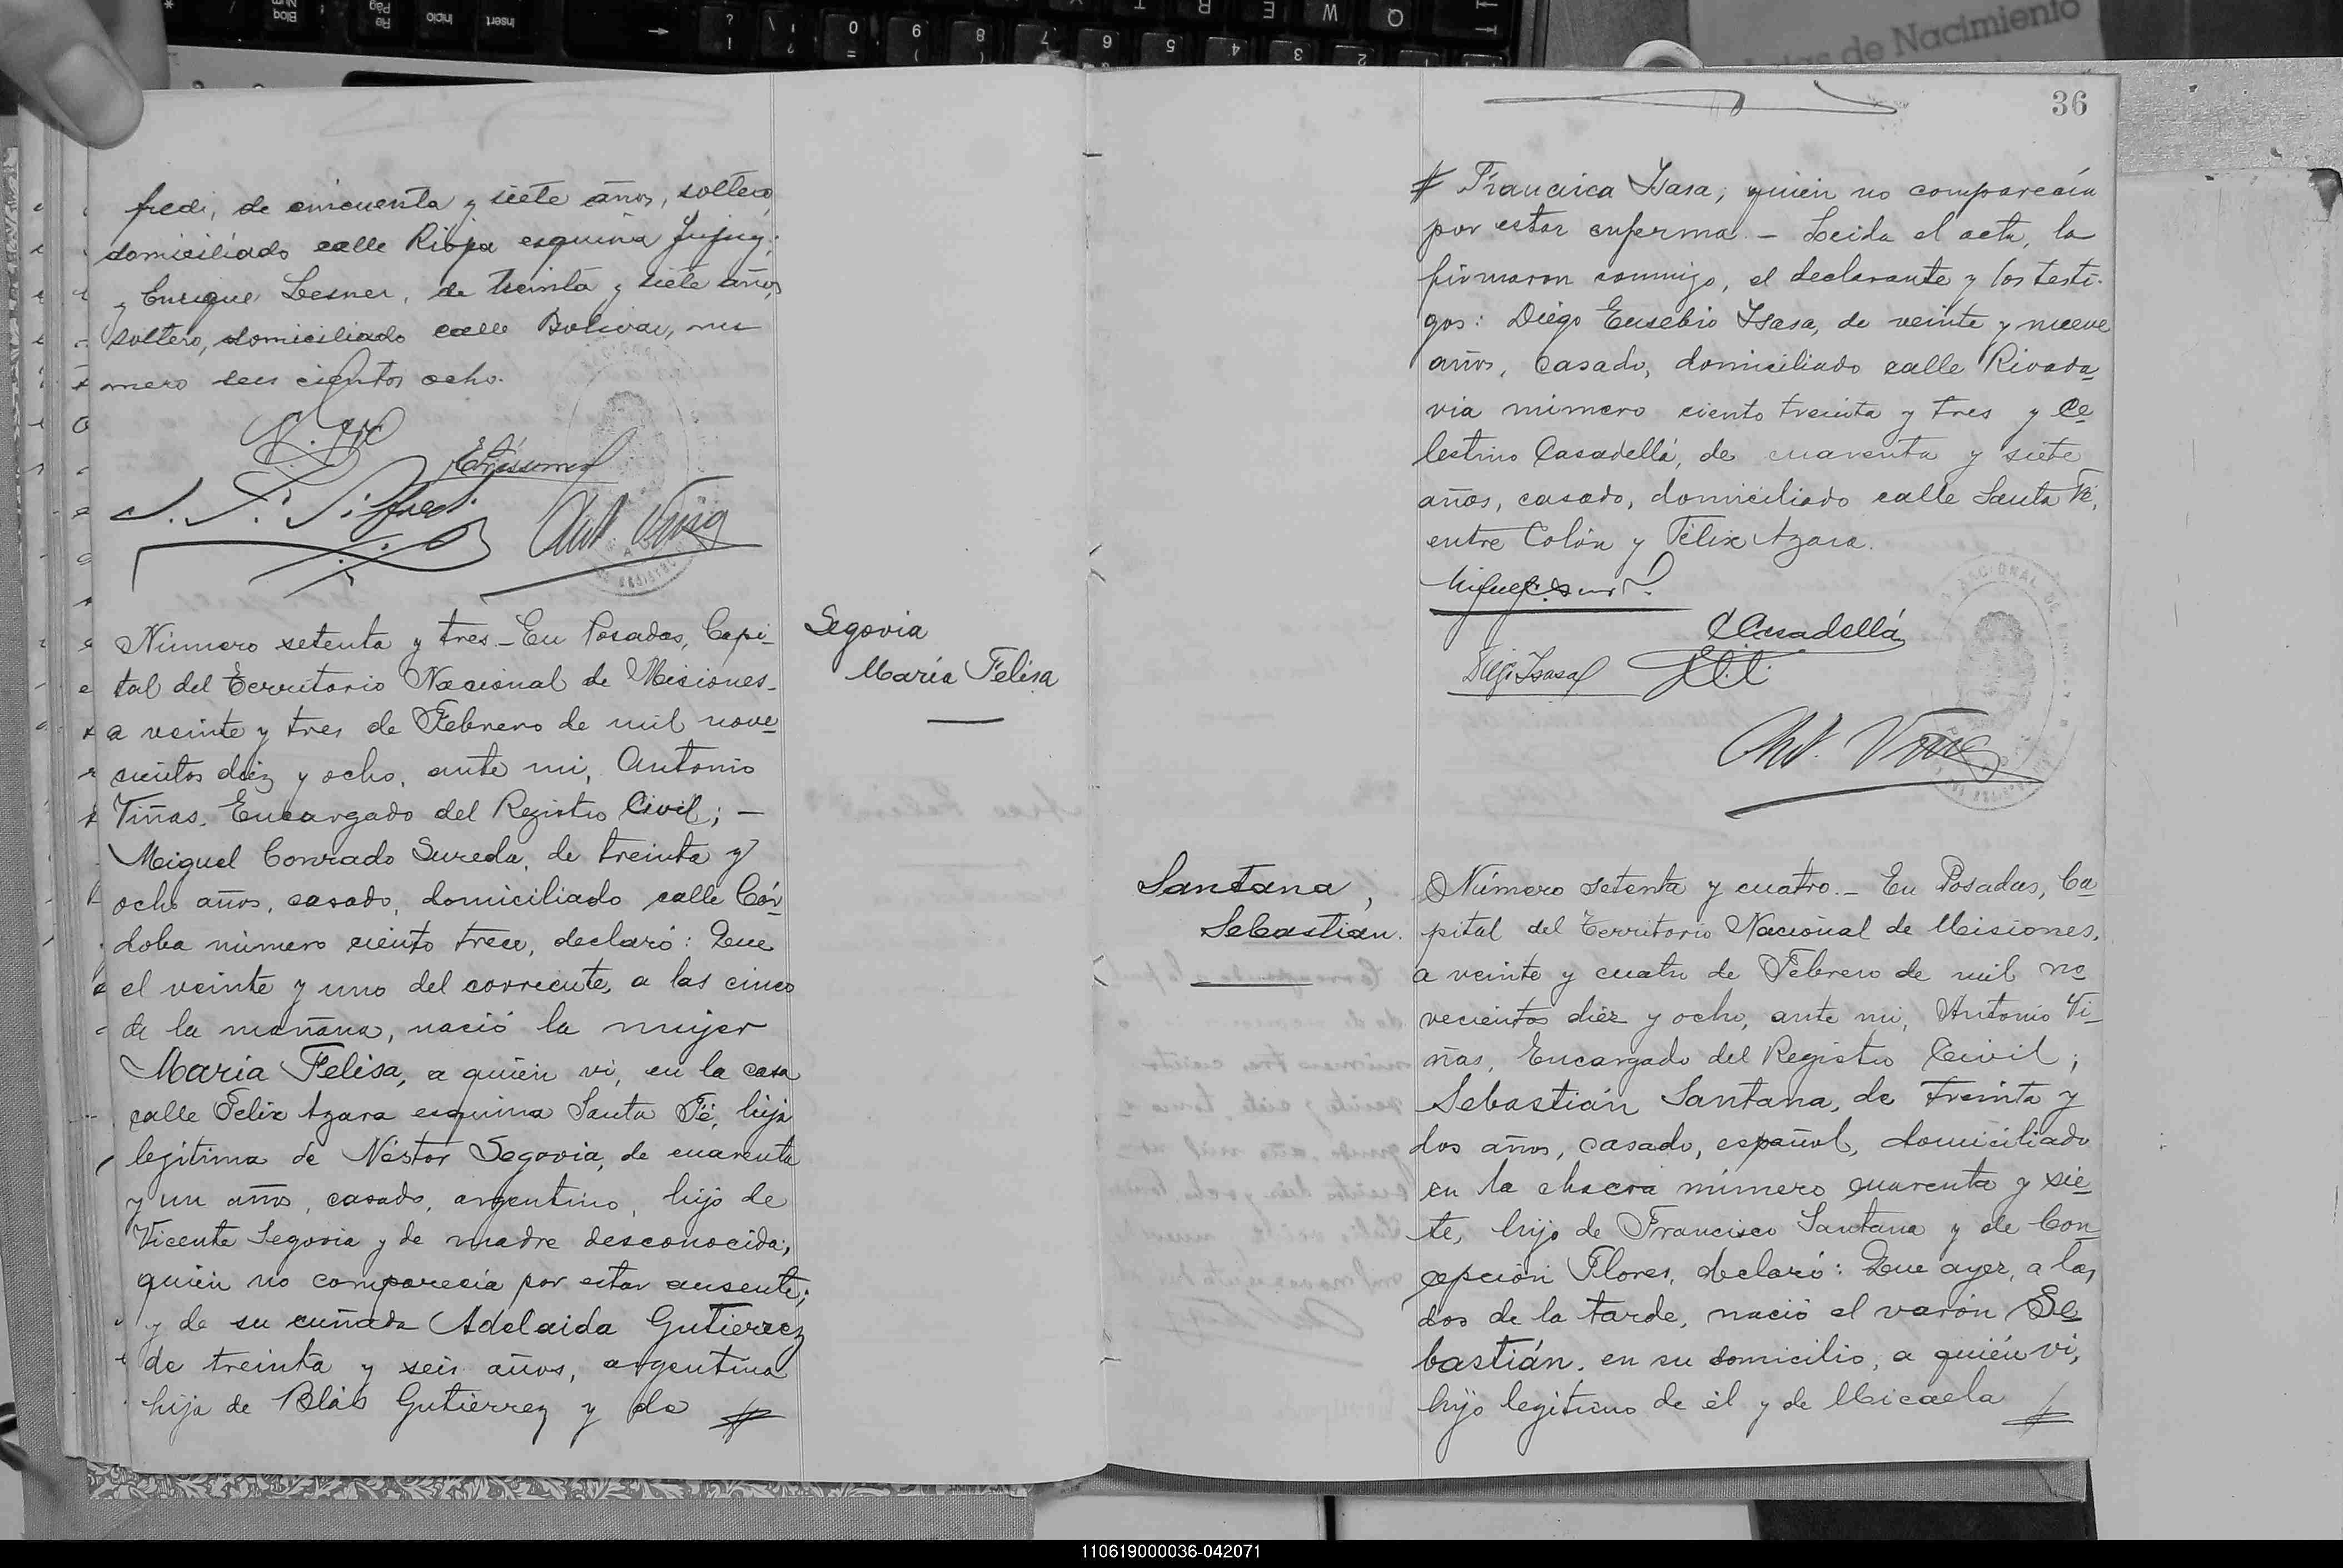 fredi, de cincuenta y siete años, soltero,
domiciliado calle Rioja esquina Jujuy;
y Enrique Lesner, de treinta y siete años,
soltero, domiciliado calle Bolivar, nu
mero seis cientos ocho.
Número setenta y tres - En Posadas, Capi-
tal del Territorio Nacional de Misiones-
a veinte y tres de Febrero de mil nove
cientos diez y ocho, ante mi, Antonio
Viñas, Encargado del Registro Civil; -
Miguel Conrado Sureda, de treinta y
ocho años, casado, domiciliado calle Cór
doba número ciento trece, declaró: Que
el veinte y uno del corriente, a las cinco
de la mañana, nació la mujer
María Felisa, a quién vi, en la casa
calle Felix Azara esquina Santa Fé, hija
legitima de Néstor Segovia, de cuarenta
y un años, casado, argentino, hijo de
Vicente Segovia y de madre desconocida,
quién no comparecía por estar ausente;
y de su cuñada Adelaida Gutierrez
de treinta y seis años, argentina
hija de Blás Gutiérrez y de #
Segovia
María Felisa
36
# Francisca Isasa, quién no comparecía
por estar enferma. - Leida el acta, la
firmaron conmigo, el declarante y los testi-
gos: Diégo Eusebio Isasa, de veinte y nueve
años, casado, domiciliado calle Rivada
via número ciento treinta y tres y Ce
lestino Casadellá, de cuarenta y siete
años, casado, domiciliado calle Santa Fé,
entre Colón y Félix Azara.
C Casadellá
Diego Isasa
Ant. Viñas
Santana,
Sebastián.
Número setenta y cuatro. - En Posadas, Ca
pital del Territorio Nacional de Misiones,
a veinte y cuatro de Febrero de mil no
vecientos diez y ocho, ante mi, Antonio Vi-
ñas, Encargado del Registro Civil;
Sebastián Santana, de treinta y
dos años, casado, español, domiciliado
en la chacra número cuarenta y sie
te, hijo de Francisco Santana y de Con
cepción Flores, declaró: Que ayer, a las
dos de la tarde, nació el varón Se
bastián, en su domicilio, a quién vi,
hijo legitimo de él y de Micaela #
Actas de Nacimiento
110619000036-042071